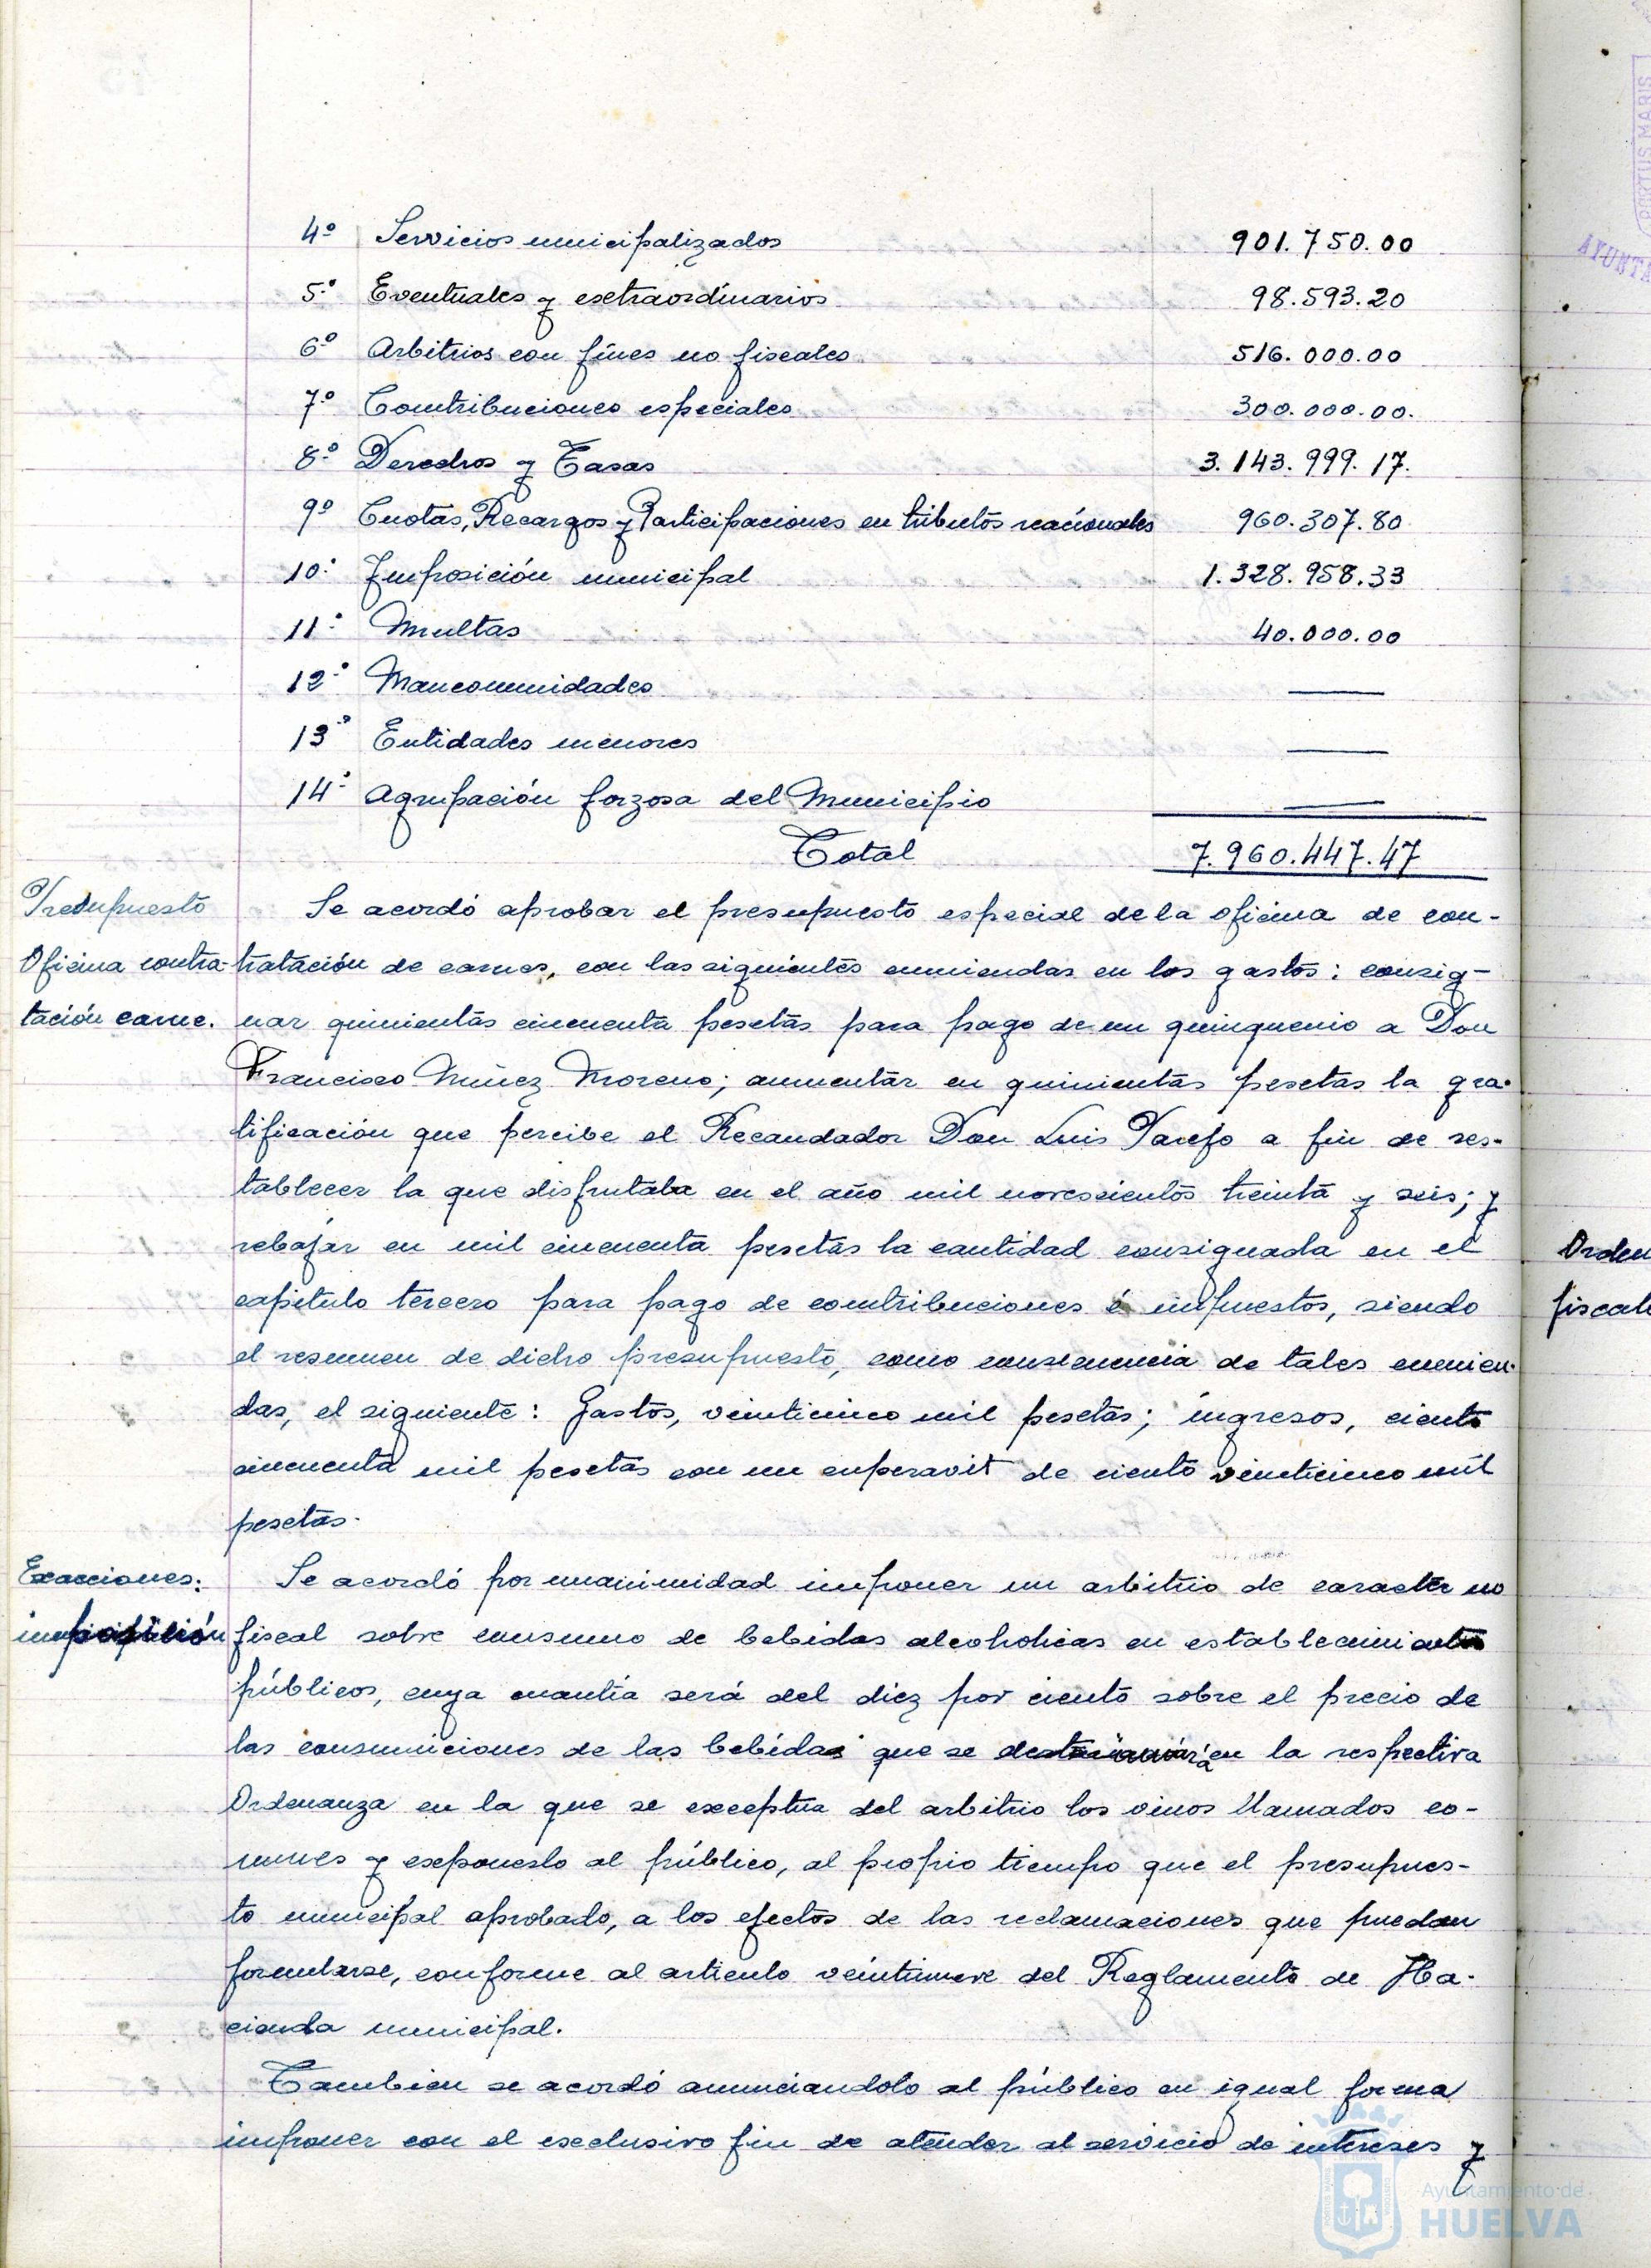 4º Servicios municipalizados 901.750.00
5º Eventuales y extraordinarios 98.593.20
6º Arbitrios con fines no fiscales 516.000.00
7º Contribuciones especiales 300.000.00.
8º Derechos y Tasas 3.143.999.17.
9º Cuotas, Recargos y Participaciones en tributos nacionales 960.307.80
10º Imposición municipal 1.328.958.33
11º Multas 40.000.00
12º Mancomunidades ———
13º Entidades menores ———
14º Agrupación forzosa del Municipio ———
Total 7.960.447.47
Presupuesto
Oficina contra-
tación carne.
Se acordó aprobar el presupuesto especial de la oficina de con-
tratación de carnes, con las siguientes enmiendas en los gastos: consig-
nar quinientas cincuenta pesetas para pago de un quinquenio a Don
Francisco Núñez Moreno; aumentar en quinientas pesetas la gra-
tificación que percibe el Recaudador Don Luis Parejo a fin de res-
tablecer la que disfrutaba en el año mil novescientos treinta y seis; y
rebajar en mil cincuenta pesetas la cantidad consignada en el
capitulo tercero para pago de contribuciones é impuestos, siendo
el resumen de dicho presupuesto, como consecuencia de tales enmien-
das, el siguiente: Gastos, veinticinco mil pesetas; ingresos, ciento
cincuenta mil pesetas con un superavit de ciento veinticinco mil
pesetas.
Exacciones:
imposición
Se acordó por unanimidad imponer un arbitrio de caracter no
fiscal sobre consumo de bebidas alcoholicas en establecimientos
públicos, cuya cuantía será del diez por ciento sobre el precio de
las consumiciones de las bebidas que se en la respectiva
Ordenanza en la que se exceptua del arbitrio los vinos llamados co-
munes y exponerlo al público, al propio tiempo que el presupues-
to municipal aprobado, a los efectos de las reclamaciones que puedan
formularse, conforme al articulo veintinueve del Reglamento de Ha-
cienda municipal.
Tambien se acordó anunciandolo al público en igual forma
imponer con el exclusivo fin de atender al servicio de intereses y
Orden
fiscal
PORTUS MARIS
AYUNTA
Ayuntamiento de
HUELVA